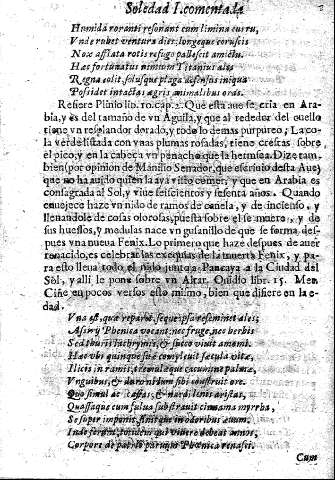 Soledad I. comentada
Humida roranti resonant cum limina curru,
Unde rubet ventura dies, longeque coruscis
Nox afflata rotis refugo pallescit amictu.
Hæc fortunatus nimium Titanius ales
Regna colit, solusque plaga defensus iniqua
Possidet intactas ægris animalibus oras.
Refiere Plinio lib. 10. cap. 2. Que esta aue se cria en Ara-
bia, y es del tamaño de vn Aguila, y que al rededor del cuello
tiene vn resplandor dorado, y todo lo demas purpureo; La co-
la verde listada con vnas plumas rosadas, tiene crestas sobre
el pico, y en la cabeça vn penacho que la hermosea. Dize tam-
bien (por opinion de Manilio Senador, que escriuio desta Aue)
que no ha auido quien la aya visto comer, y que en Arabia es
consagrada al Sol, y viue seiscientos y sesenta años. Quando
enuejece haze vn nido de ramos de canela, y de incienso, y
llenandole de cosas olorosas, puesta sobre el se muere, y de
sus huessos, y medulas nace vn gusanillo de que se forma des-
pues vna nueua Fenix. Lo primero que haze despues de auer
renacido, es celebrar las exequias de la muerta Fenix, y pa-
ra esto lleua todo el nido junto a Pancaya a la Ciudad del
Sol, y alli le pone sobre vn Altar. Ouidio lib. 15. Met.
Ciñe en pocos versos esto mismo, bien que difiere en la e-
dad.
Vna est, quæ reparet, seque ipsa reseminet ales;
Assirij Phœnica vocant: nec fruge, nec herbis
Sed thuris lachrymis, & succo viuit amomi.
Hæc vbi quinque suæ compleuit sæcula vitæ,
Ilicis in ramis, tremulæque cacumine palmæ,
Vnguibus, & duro nidum sibi construit ore.
Quo simul ac casias, & nardi lenis aristas,
Quassaque cum fulua substrauit cinnama myrrha,
Se super imponit, finitque in odoribus æuum.
Inde ferunt, totidem qui viuere debeat annos,
Corpore de patrio paruum Phœnica renasci.
Cum